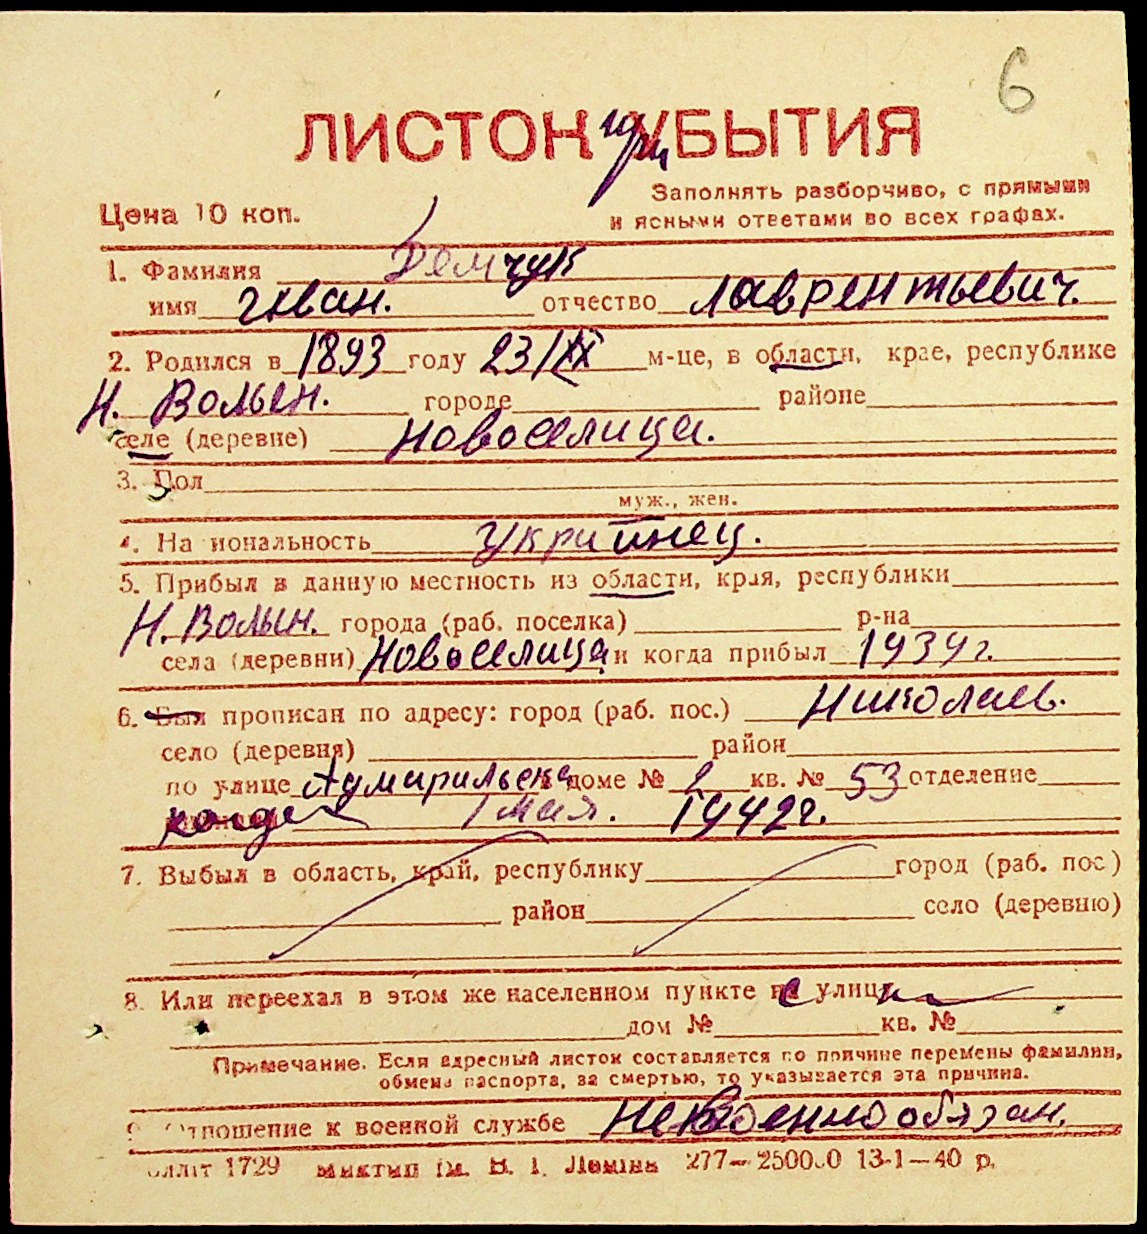 6
ЛИСТОК при УБЫТИЯ
Заполнять разборчиво, с прямыми
Цена 10 коп. и ясными ответами во всех графах.
1. Фамилия Демчук
имя Иван. отчество Лаврентьевич.
2. Родился в 1893 году 23/IX м-це, в области, крае, республике
Н. Волын. городе районе
селе (деревне) Новоселица.
3. Пол
муж., жен.
4. Национальность Украинец.
5. Прибыл в данную местность из области, края, республики
Н. Волын. города (раб. поселка) р-на
села (деревни) Новоселица и когда прибыл 1939г.
6. Был прописан по адресу: город (раб. пос.) Николаев.
село (деревня) район
по улице Адмиральска доме № 2 кв. № 53 отделение
когда 1 мая. 1942г.
7. Выбыл в область, край, республику город (раб. пос)
район село (деревню)
8. Или переехал в этом же населенном пункте с улицы
дом № кв. №
Примечание. Если адресный листок составляется по причине перемены фамилии,
обмена паспорта, за смертью, то указывается эта причина.
9. Отношение к военной службе Невоеннообязан.
1729 им. В. І. Леніна 277—250000 13-1—40 р.